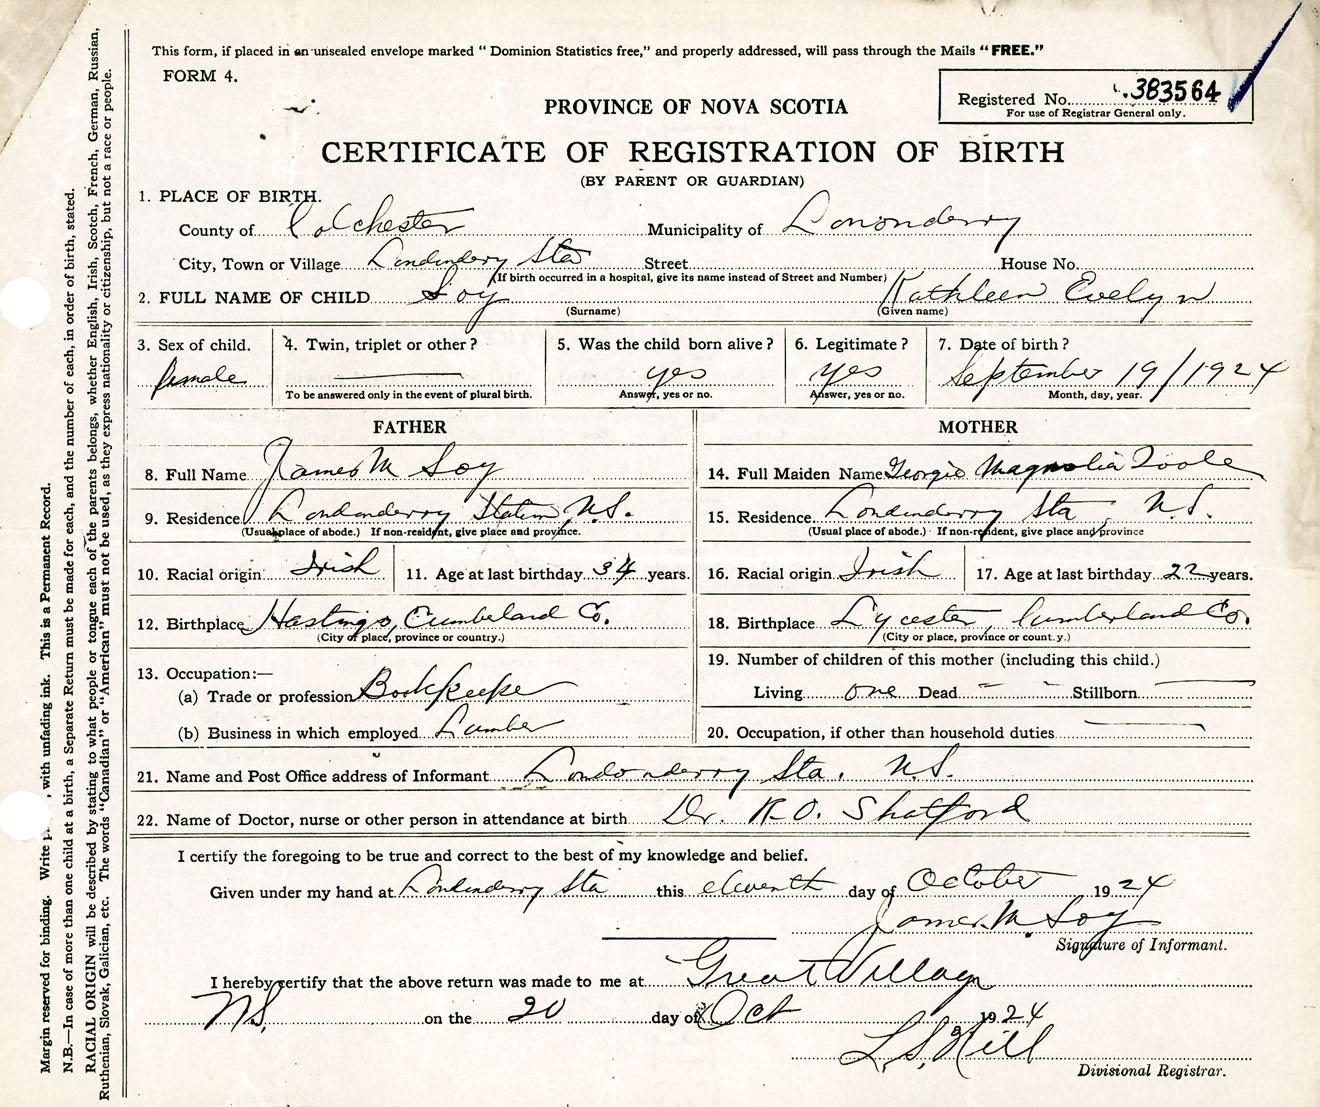 This form, if placed in an unsealed envelope marked "Dominion Statistics free," and properly addressed, will pass through the Mails "FREE."
FORM 4.
Registered No. 383564
For use of Registrar General only.
PROVINCE OF NOVA SCOTIA
CERTIFICATE OF REGISTRATION OF BIRTH
(BY PARENT OR GUARDIAN)
1. PLACE OF BIRTH.
County of Colchester Municipality of Lononderry
City, Town or Village Londonderry Sta Street House No.
(If birth occurred in a hospital, give its name instead of Street and Number)
2. FULL NAME OF CHILD Soy Kathleen Evelyn
(Surname) (Given name)
3. Sex of child. 4. Twin, triplet or other? 5. Was the child born alive? 6. Legitimate? 7. Date of birth?
female yes yes September 19/1924
To be answered only in the event of plural birth. Answer, yes or no. Answer, yes or no. Month, day, year.
FATHER
8. Full Name James M Soy
9. Residence Londonderry Station N.S.
(Usual place of abode.) If non-resident, give place and province.
10. Racial origin Irish 11. Age at last birthday 34 years.
12. Birthplace Hastings, Cumberland Co.
(City or place, province or country.)
13. Occupation:—
(a) Trade or profession Bookkeeper
(b) Business in which employed Lumber
MOTHER
14. Full Maiden Name Georgie Magnolia Toole
15. Residence Londonderry Sta N.S.
(Usual place of abode.) If non-resident, give place and province
16. Racial origin Irish 17. Age at last birthday 22 years.
18. Birthplace Lycester, Cumberland Co.
(City or place, province or count.y.)
19. Number of children of this mother (including this child.)
Living one Dead Stillborn
20. Occupation, if other than household duties
21. Name and Post Office address of Informant Londonderry Sta. N.S.
22. Name of Doctor, nurse or other person in attendance at birth Dr. R.O. Shatford
I certify the foregoing to be true and correct to the best of my knowledge and belief.
Given under my hand at Londonderry Sta this eleventh day of October 1924
James M Soy
Signature of Informant.
I hereby certify that the above return was made to me at Great Village
N.S. on the 20 day of Oct 1924
L.S. Hill
Divisional Registrar.
Margin reserved for binding. Write , with unfading ink. This is a Permanent Record.
N.B.—In case of more than one child at a birth, a Separate Return must be made for each, and the number of each, in order of birth, stated.
RACIAL ORIGIN will be described by stating to what people or tongue each of the parents belongs, whether English, Irish, Scotch, French, German, Russian,
Ruthenian, Slovak, Galician, etc. The words "Canadian" or "American" must not be used, as they express nationality or citizenship, but not a race or people.